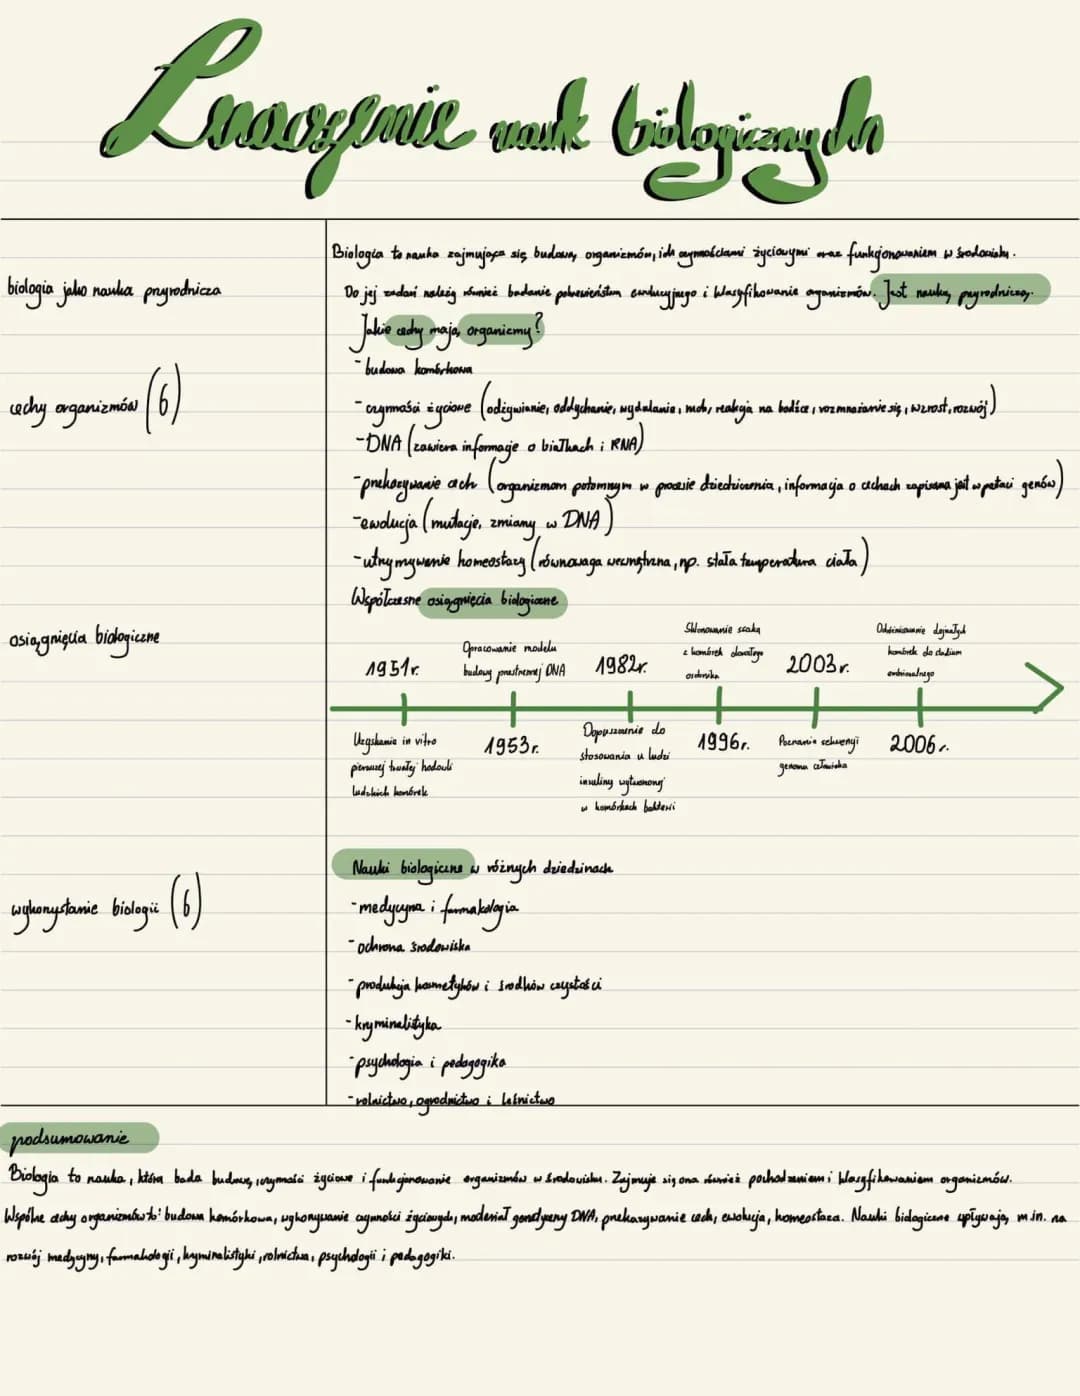 Znaczenie nauk biologicznych
biologia jako nauka przyrodnicza
Biologia to nauka zajmująca się budową organizmów, ich czynnościami życiowymi oraz funkcjonowaniem w środowisku.
Do jej zadań należy również badanie pokrewieństwa ewolucyjnego i klasyfikowanie organizmów. Jest nauką przyrodniczą.
cechy organizmów (6)
Jakie cechy mają organizmy?
- budowa komórkowa
- czynności życiowe (odżywianie, oddychanie, wydalanie, ruch, reakcja na bodźce, rozmnażanie się, wzrost, rozwój)
- DNA (zawiera informacje o białkach i RNA)
- przekazywanie cech (organizmom potomnym w procesie dziedziczenia, informacja o cechach zapisana jest w postaci genów)
- ewolucja (mutacje, zmiany w DNA)
- utrzymywanie homeostazy (równowaga wewnętrzna, np. stała temperatura ciała)
osiągnięcia biologiczne
Współczesne osiągnięcia biologiczne
1951r.
Uzyskanie in vitro
pierwszej trwałej hodowli
ludzkich komórek
Opracowanie modelu
budowy przestrzennej DNA
1953r.
1982r.
Dopuszczenie do
stosowania u ludzi
insuliny wytworzonej
w komórkach bakterii
Sklonowanie ssaka
z komórek dorosłego
osobnika
1996r.
2003r.
Poznanie sekwencji
genomu człowieka
komórek do stadium
embrionalnego
2006r.
wykorzystanie biologii (6)
Nauki biologiczne w różnych dziedzinach
- medycyna i farmakologia
- ochrona środowiska
- produkcja kosmetyków i środków czystości
- kryminalistyka
- psychologia i pedagogika
- rolnictwo, ogrodnictwo i leśnictwo
podsumowanie
Biologia to nauka, która bada budowę, czynności życiowe i funkcjonowanie organizmów w środowisku. Zajmuje się ona również pochodzeniem i klasyfikowaniem organizmów.
Wspólne cechy organizmów to: budowa komórkowa, wykonywanie czynności życiowych, materiał genetyczny DNA, przekazywanie cech, ewolucja, homeostaza. Nauki biologiczne wpływają m.in. na
rozwój medycyny, farmakologii, kryminalistyki, rolnictwa, psychologii i pedagogiki.